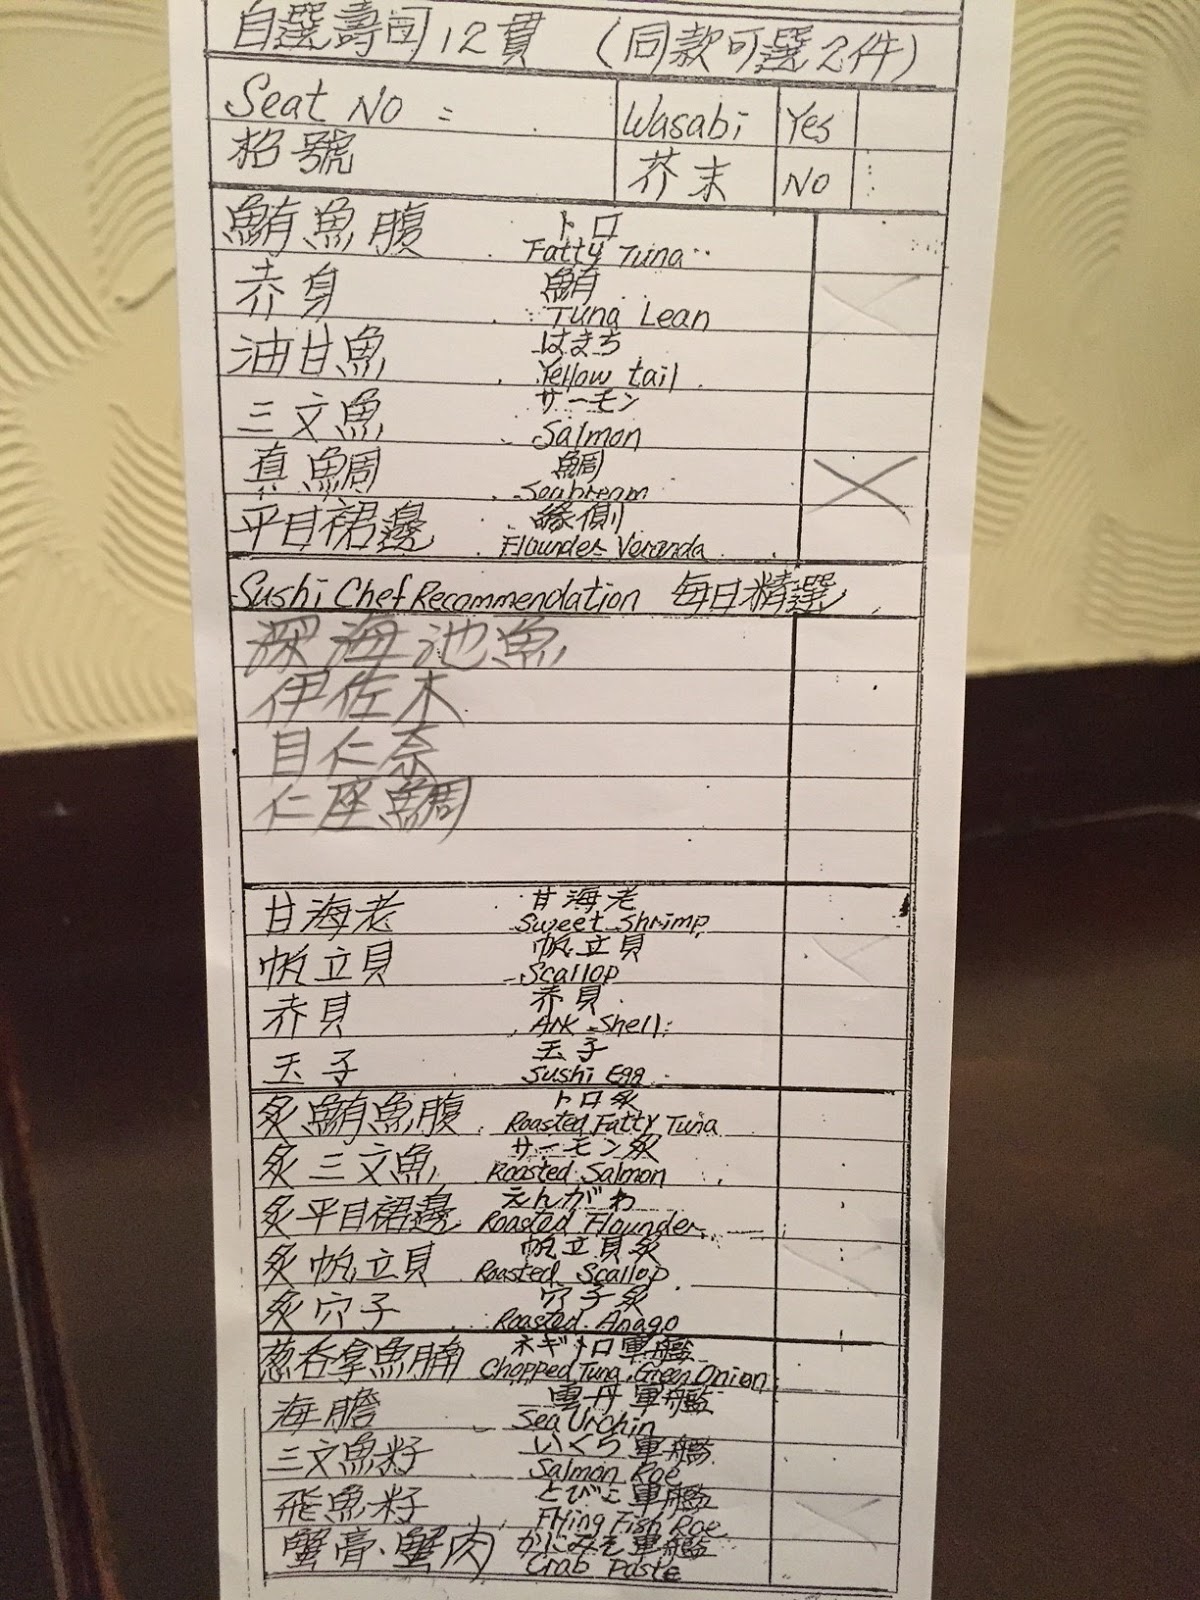 自選壽司12貫 (同款可選2件)
Seat No: Wasabi Yes
枱號 芥末 No
鮪魚腹 トロ
Fatty Tuna
赤身 鮪
Tuna Lean
油甘魚 はまち
Yellow tail
三文魚 サーモン
Salmon
真鯛 鯛
Seabream
平目裙邊 緣側
Flounder Veranda
Sushi Chef Recommendation 每日精選
深海池魚
伊佐木
目仁奈
仁座鯛
甘海老 甘海老
Sweet Shrimp
帆立貝 帆立貝
Scallop
赤貝 赤貝
Ark Shell
玉子 玉子
Sushi Egg
炙鮪魚腹 トロ炙
Roasted Fatty Tuna
炙三文魚 サーモン炙
Roasted Salmon
炙平目裙邊 えんがわ
Roasted Flounder
炙帆立貝 帆立貝炙
Roasted Scallop
炙穴子 穴子炙
Roasted Anago
葱吞拿魚腩 ネギトロ軍艦
Chopped Tuna, Green Onion
海膽 雲丹軍艦
Sea Urchin
三文魚籽 いくら軍艦
Salmon Roe
飛魚籽 とびこ軍艦
Flying Fish Roe
蟹膏、蟹肉 かにみそ軍艦
Crab Paste